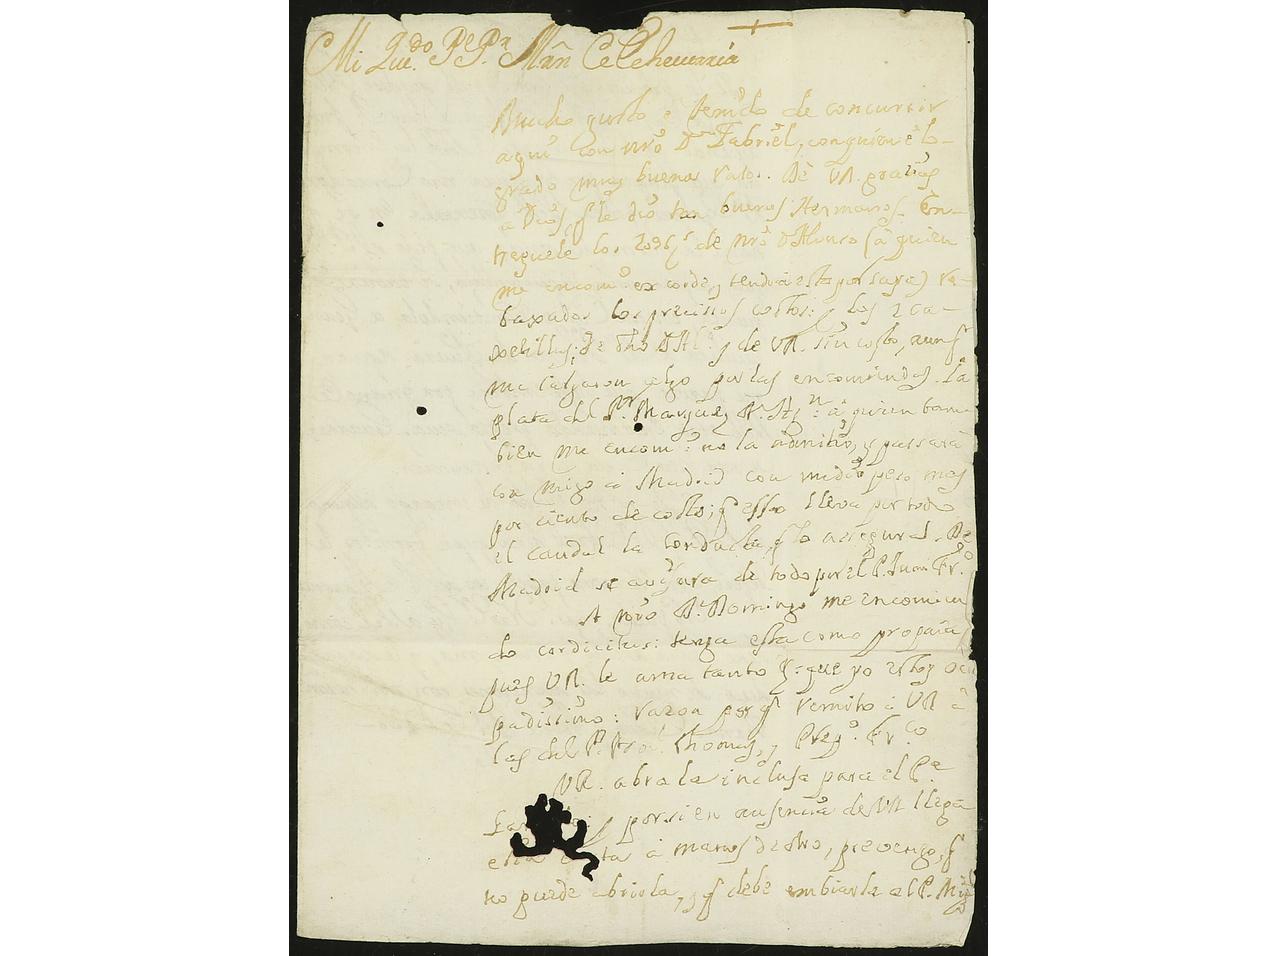 Mi Qu.do P.e P.r Man Echeverria
Mucho gusto e tenido de concurrir
aqui con nro Dn Gabriel, con quien è lo-
grado muy buenos ratos. Dè VR. gracias
a Dios, q le dio tan buenos Hermanos. En-
treguele los de nro D Alonso (à quien
me encom.o ex corde, y tendrà esta por suya) re-
baxados los precissos costos: y los 2 ca-
xetillas, de dho D Al.o y de VR. sin costo, aunq
me cargaron algo por las encomiendas. La
plata del P.r Marquez à quien tam-
bien me encom.o no la admitiò, y passarà
con migo à Madrid con medio peso mas
por ciento de costo; q esso lleva por todo
el caudal la Conducta, q lo assegura. De
Madrid se avisara de todo por el P. Juan Fr.co
A nro D.n Domingo me encomien
do cordicitus: tenga esta como propria
pues VR. le ama tanto y que yo estoy ocu
padissimo: razon por q remito à VR à
las del P. Thomas, y Fr.co
VR. abra la inclusa para el P.e
y por si en ausencia de VR llega
esta carta à manos de otro, prevengo, q
no puede abrirla, y q debe embiarla al P.